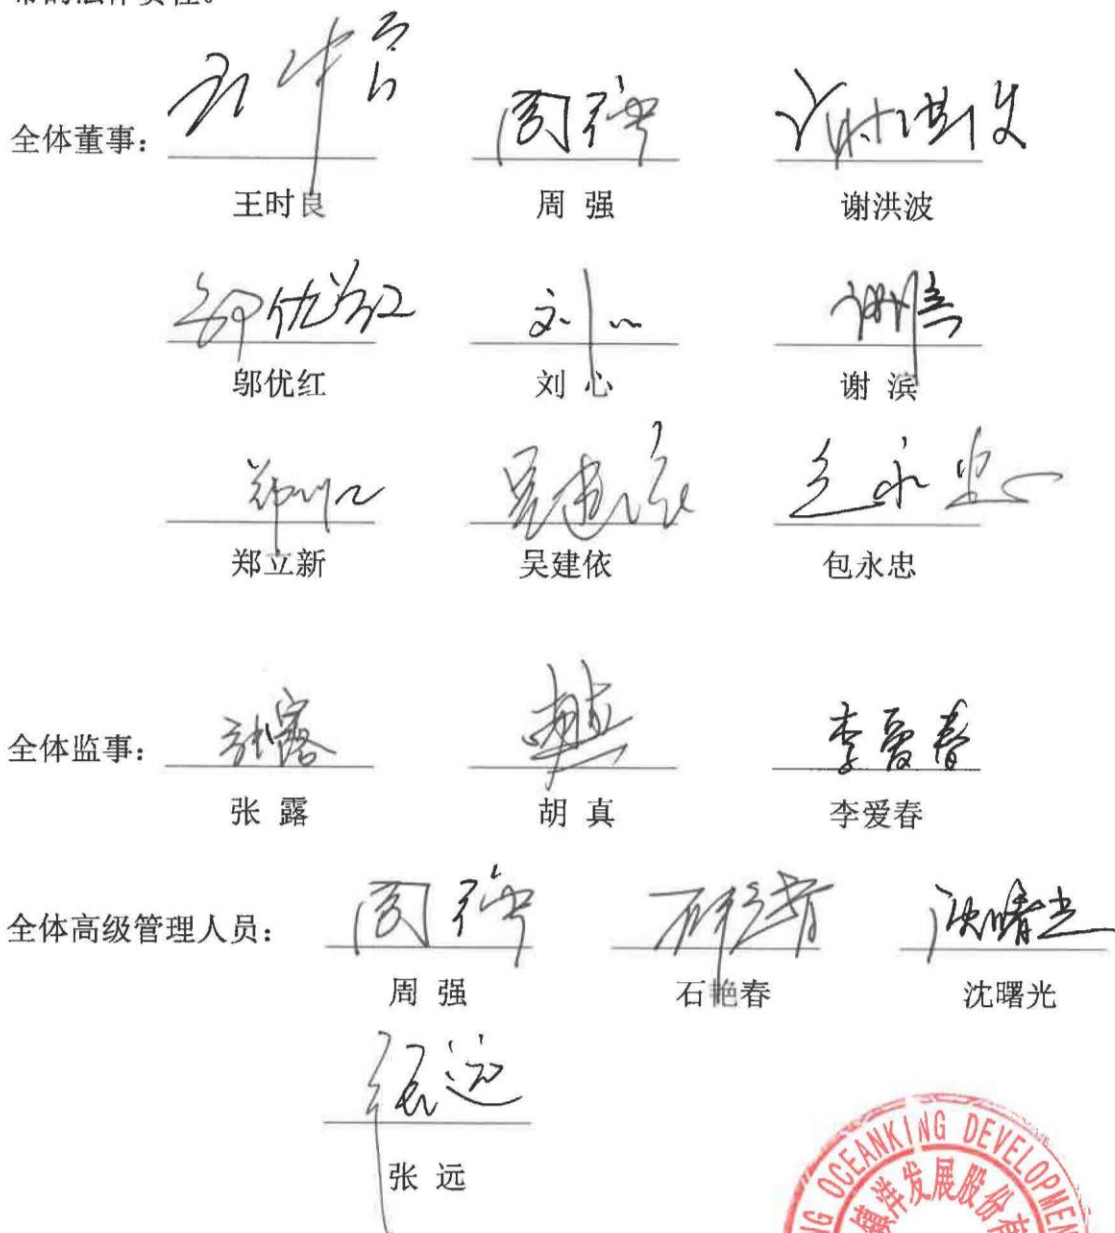 带的法律责任。
全体董事：
王时良 周 强 谢洪波
邬优红 刘 心 谢 滨
郑立新 吴建依 包永忠
全体监事：
张 露 胡 真 李爱春
全体高级管理人员：
周 强 石艳春 沈曙光
张 远
OCEANKING DEVELOPMEN
镇洋发展股份有